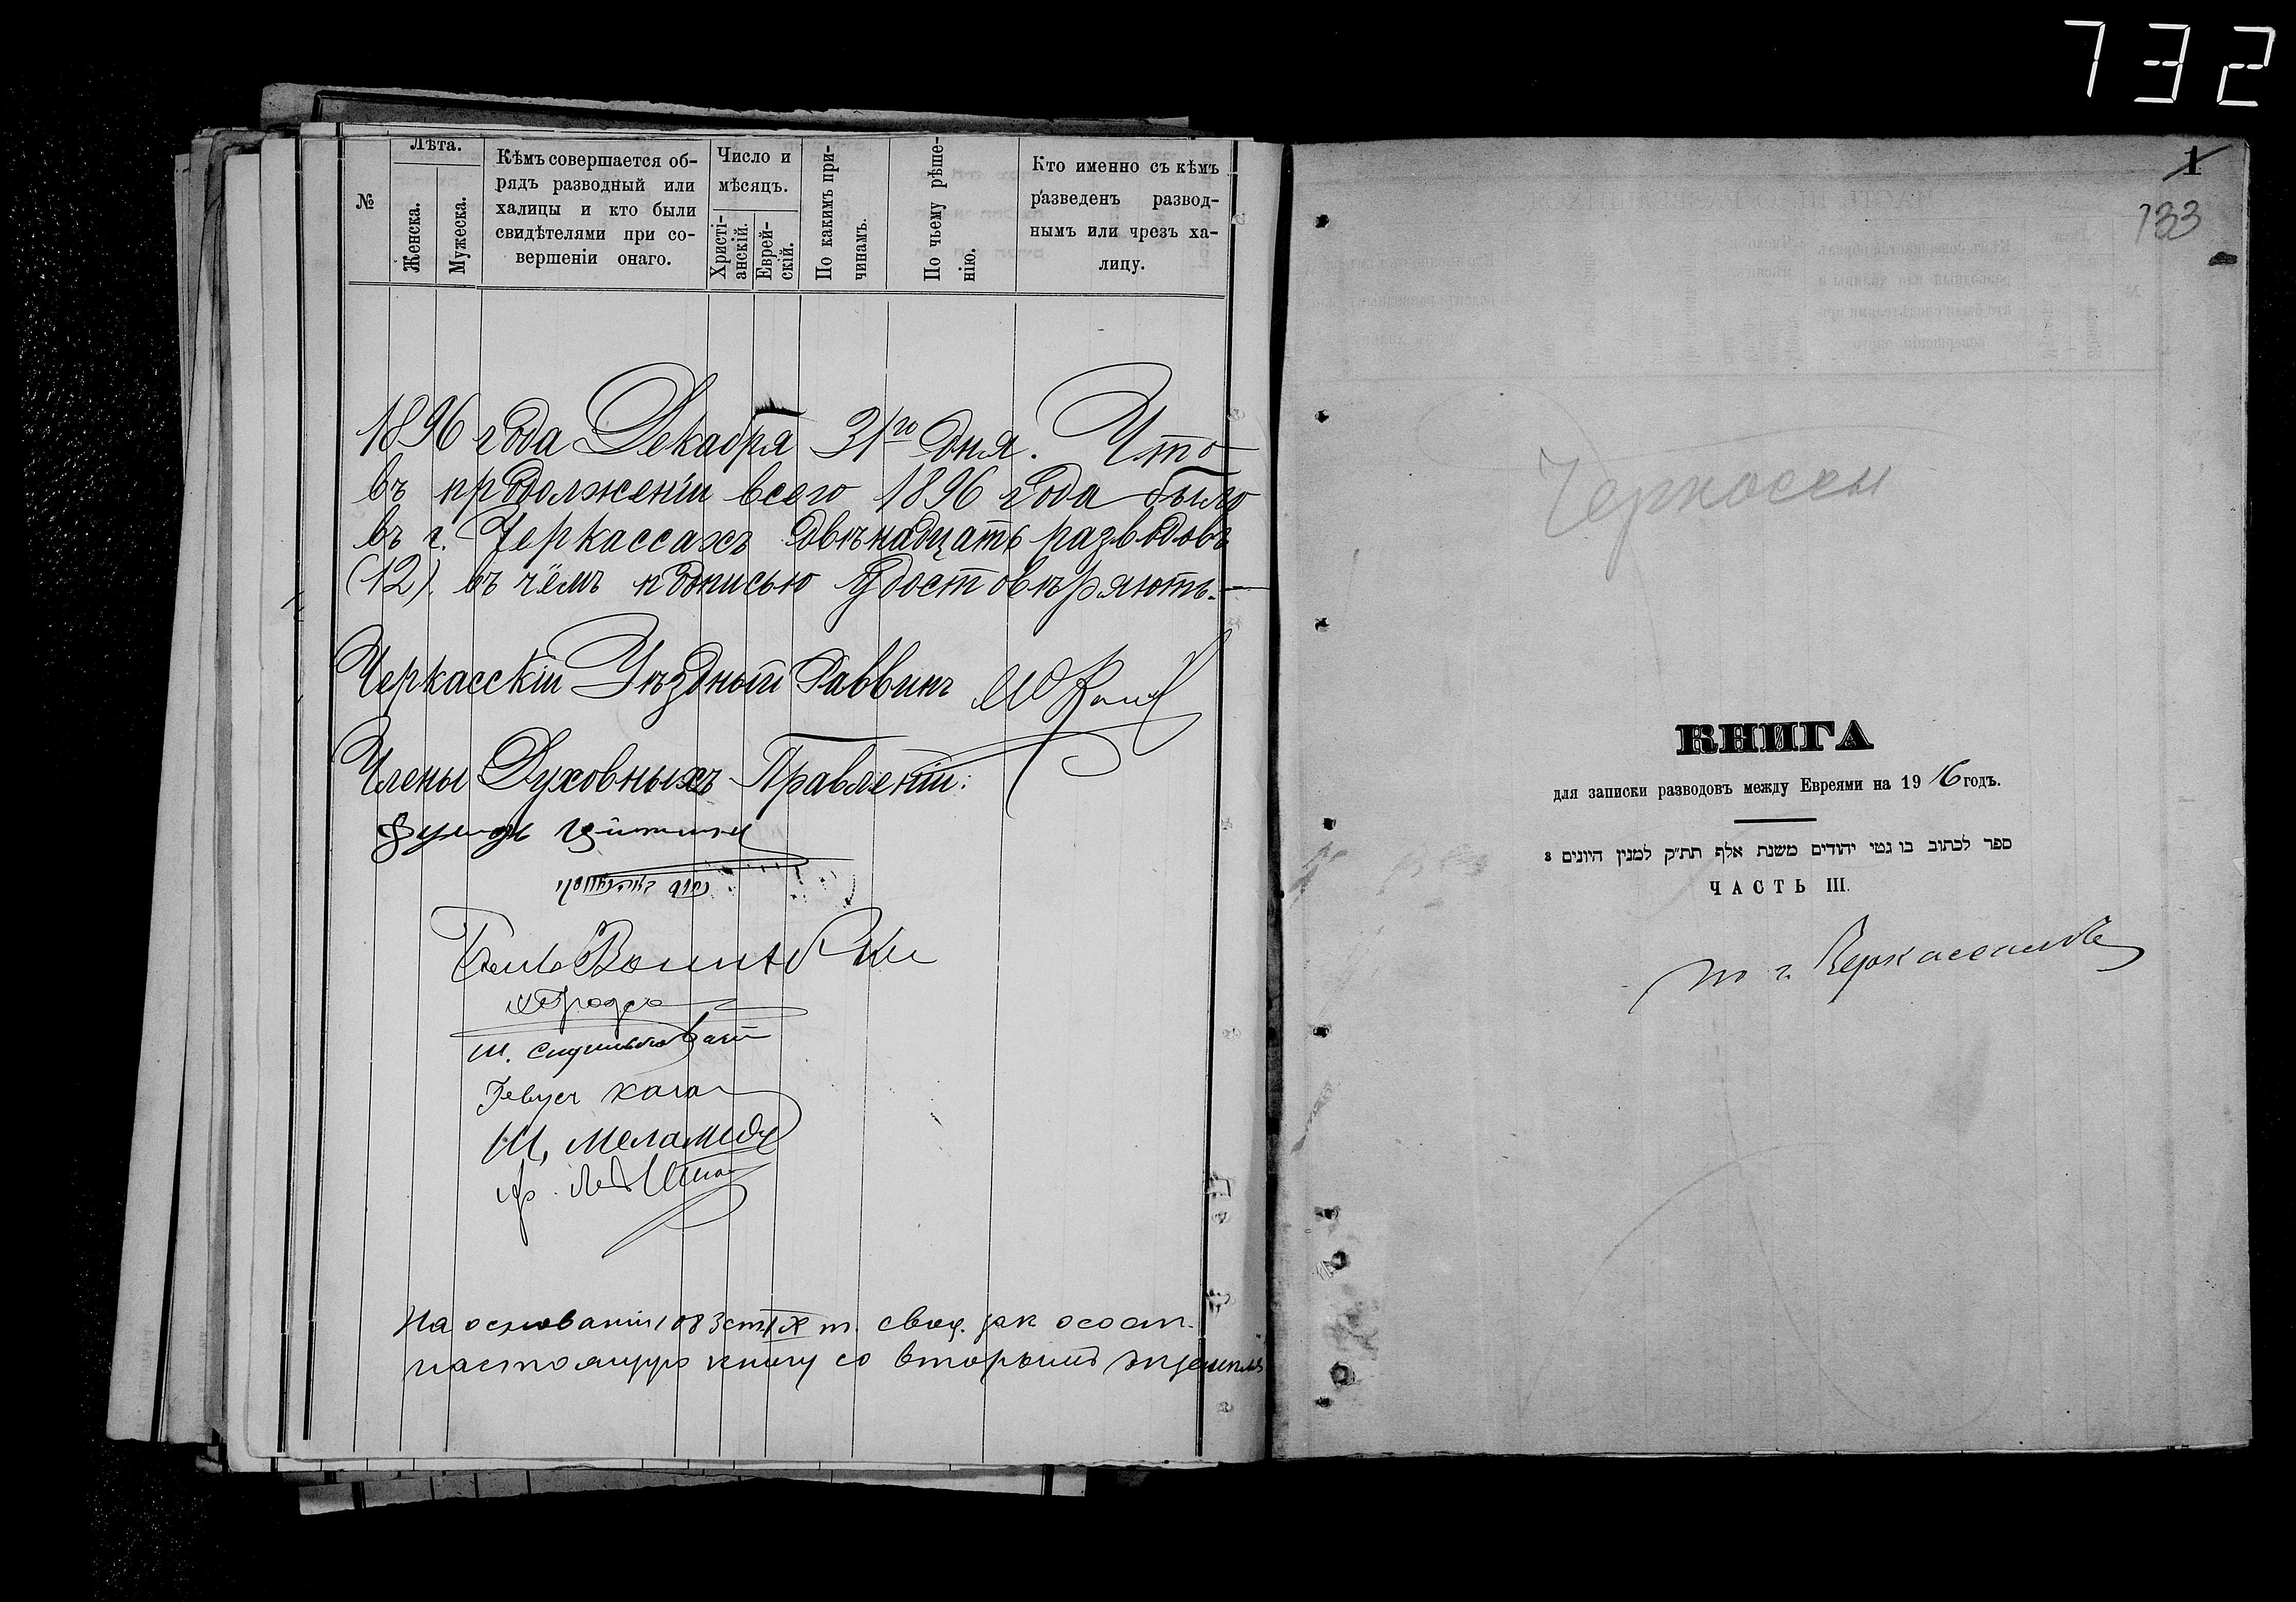 732
№
Лѣта.
Женска.
Мужеска.
Кѣмъ совершается об-
рядъ разводный или
халицы и кто были
свидѣтелями при со-
вершеніи онаго.
Число и
мѣсяцъ.
Христі-
анскій.
Еврей-
скій.
По какимъ при-
чинамъ.
По чьему рѣше-
нію.
Кто именно съ кѣмъ
разведенъ развод-
нымъ или чрезъ ха-
лицу.
1896 года Декабря 31го дня. Что
въ продолженіи всего 1896 года было
въ г. Черкассахъ двѣнадцать разводовъ
(12). въ чёмъ подписью удостовѣряютъ.
Черкасскій Уѣздный Раввинъ
Члены Духовныхъ Правленій:
Ш.
Каган
Ш. Меламедъ
На основаніи 1083 ст. IX т. свод. зак о сост.
настоящую книгу со вторымъ экземпля
1
133
Черкассы
КНИГА
для записки разводовъ между Евреями на 1916 годъ.
ספר לכתוב בו גטי יהודים משנת אלף תת״ק למנין היונים
ЧАСТЬ III.
по г. Черкассамъ